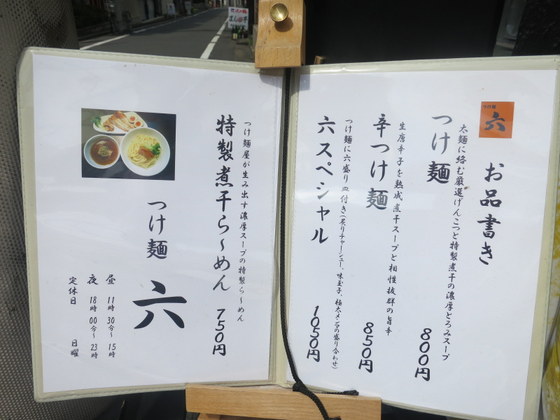 つけ麺
六
お品書き
太麺に絡む厳選げんこつと特製煮干の濃厚とろみスープ
つけ麺
800円
生唐辛子を熟成 煮干スープと相性抜群の旨辛
辛つけ麺
850円
つけ麺に六盛り皿付き(炙りチャーシュー、味玉子、極太メンマの盛り合わせ)
六スペシャル
1050円
つけ麺屋が生み出す濃厚スープの特製ら〜めん
特製煮干ら〜めん
750円
つけ麺
六
昼 11時30分〜15時
夜 18時00分〜23時
定休日 日曜